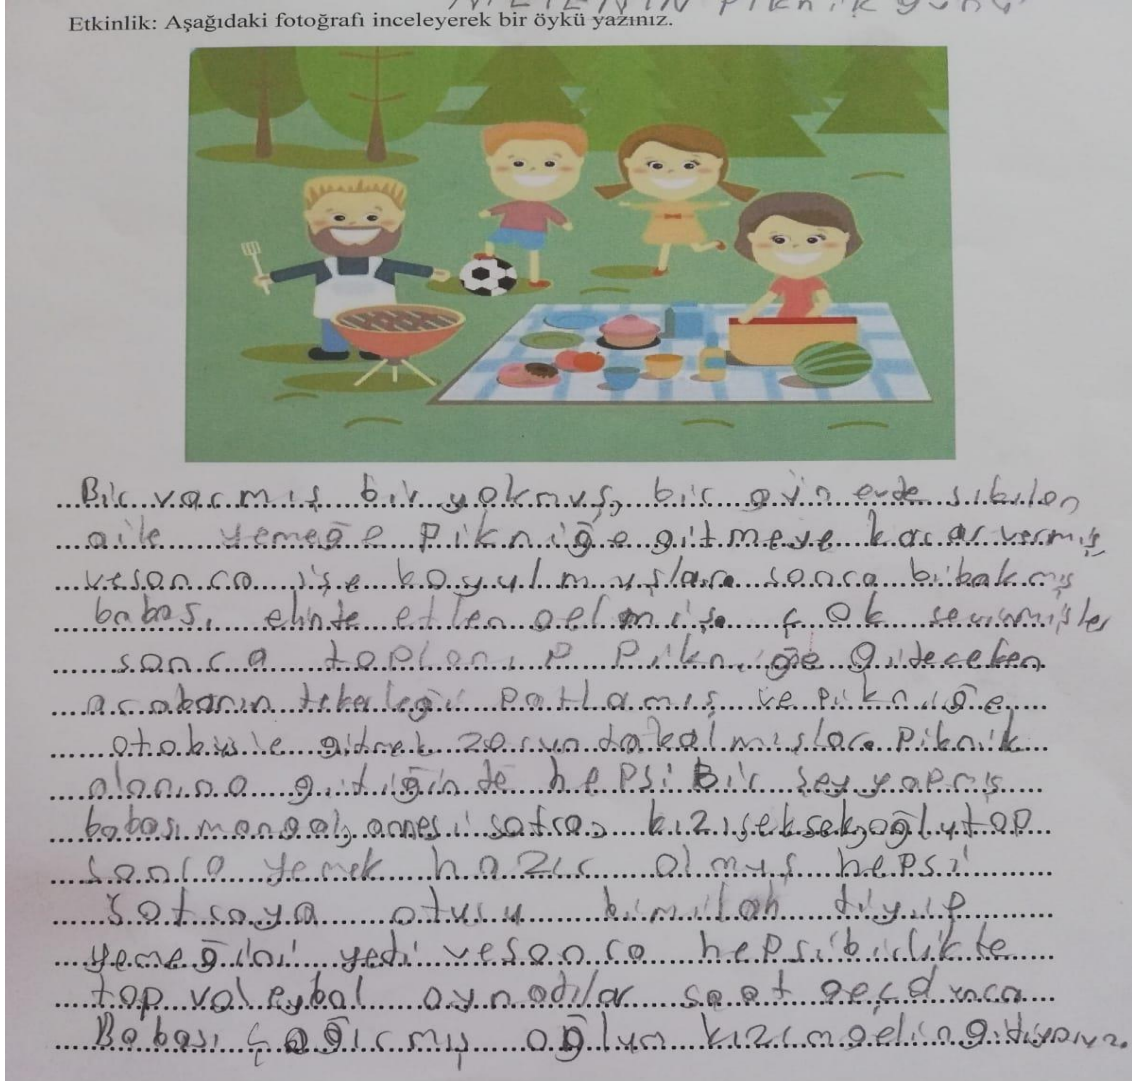 AİLENİN Piknik günü
Etkinlik: Aşağıdaki fotoğrafı inceleyerek bir öykü yazınız.
Bir varmış bir yokmuş, bir gün evde sıkılan
aile yemeğe Pikniğe gitmeye karar vermiş
vesonra işe koyulmuşlar. sonra bibakmış
babası elinte etlen gelmiş. çok sevinmişler
sonra toplanıp Pikniğe giteceken
arabanın tekerleği Patlamış ve pikniğe
otobüsle gitmek zoruntakalmışlar. Piknik
alanına gitiğinde hepsi Bir şey yapmış
babası mangal, annesi sofra, kızı seksek, oğlu top
sonra yemek hazır olmuş hepsi
Sofraya oturu bimilah tiyip
yemeğini yedi vesonra hepsi birlikte
top valeybal oynadılar saat geçdinca
Babası çağırmış oğlum kızım gelin gitiyoruz.